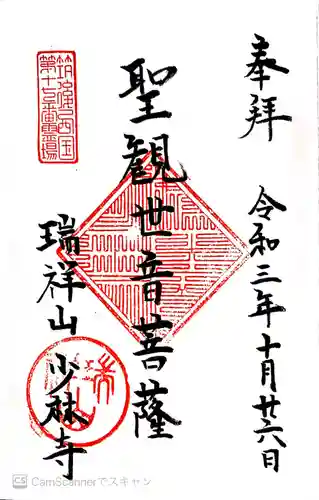 奉拝
令和三年十月廿六日
聖觀世音菩薩
瑞祥山少林寺
筑後四国
第十七番霊場
CS CamScannerでスキャン